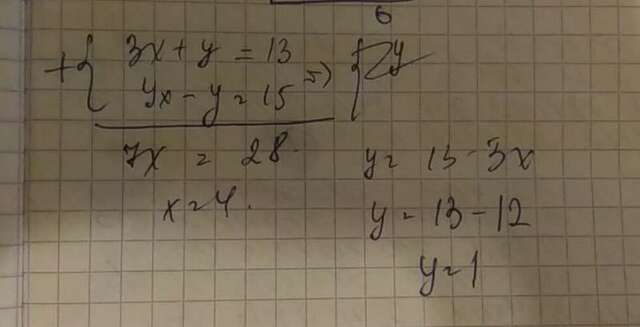 6
+{ 3x + y = 13
4x - y = 15 => {
7x = 28.
x = 4.
y = 13 - 3x
y = 13 - 12
y = 1